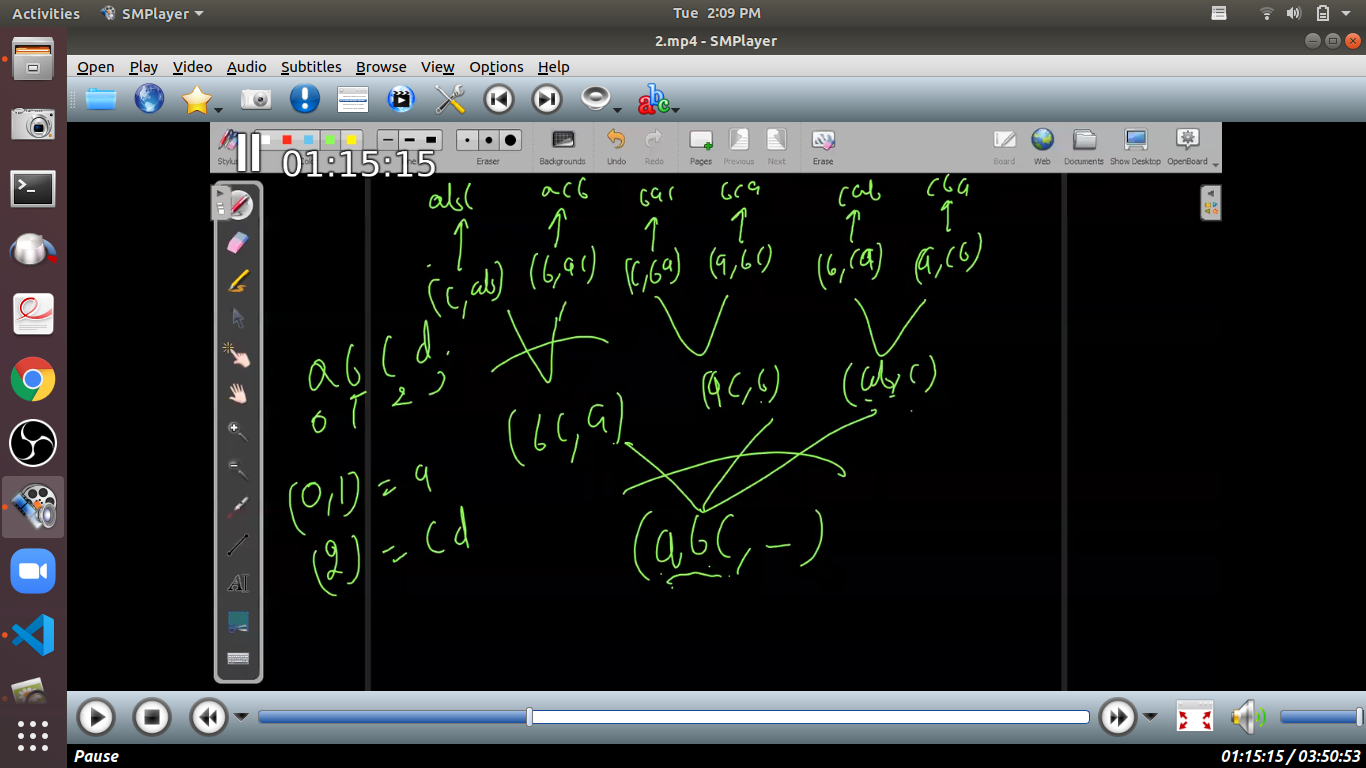 Activities SMPlayer Tue 2:09 PM
2.mp4 - SMPlayer
Open Play Video Audio Subtitles Browse View Options Help
Eraser Backgrounds Undo Redo Pages Previous Next Erase Board Web Documents Show Desktop OpenBoard
01:15:15
abc acb bac bca cab cba
(c, ab) (b, ac) (c, ba) (a, bc) (b, ca) (a, cb)
a b c d
0 1 2 3
(bc, a) (ac, b) (ab, c)
(0,1) = a
(2) = cd
(abc, -)
Pause 01:15:15 / 03:50:53